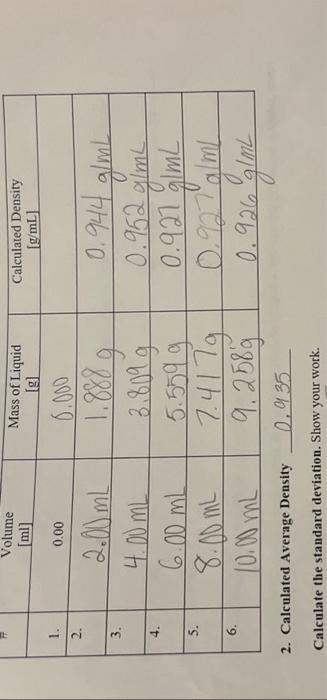 # Volume [ml] Mass of Liquid [g] Calculated Density [g/mL]
1. 0.00 0.000
2. 2.00 mL 1.888 g 0.944 g/mL
3. 4.00 mL 3.809 g 0.952 g/mL
4. 6.00 mL 5.559 g 0.927 g/mL
5. 8.00 mL 7.417 g 0.927 g/mL
6. 10.00 mL 9.258 g 0.926 g/mL
2. Calculated Average Density 0.935
Calculate the standard deviation. Show your work.